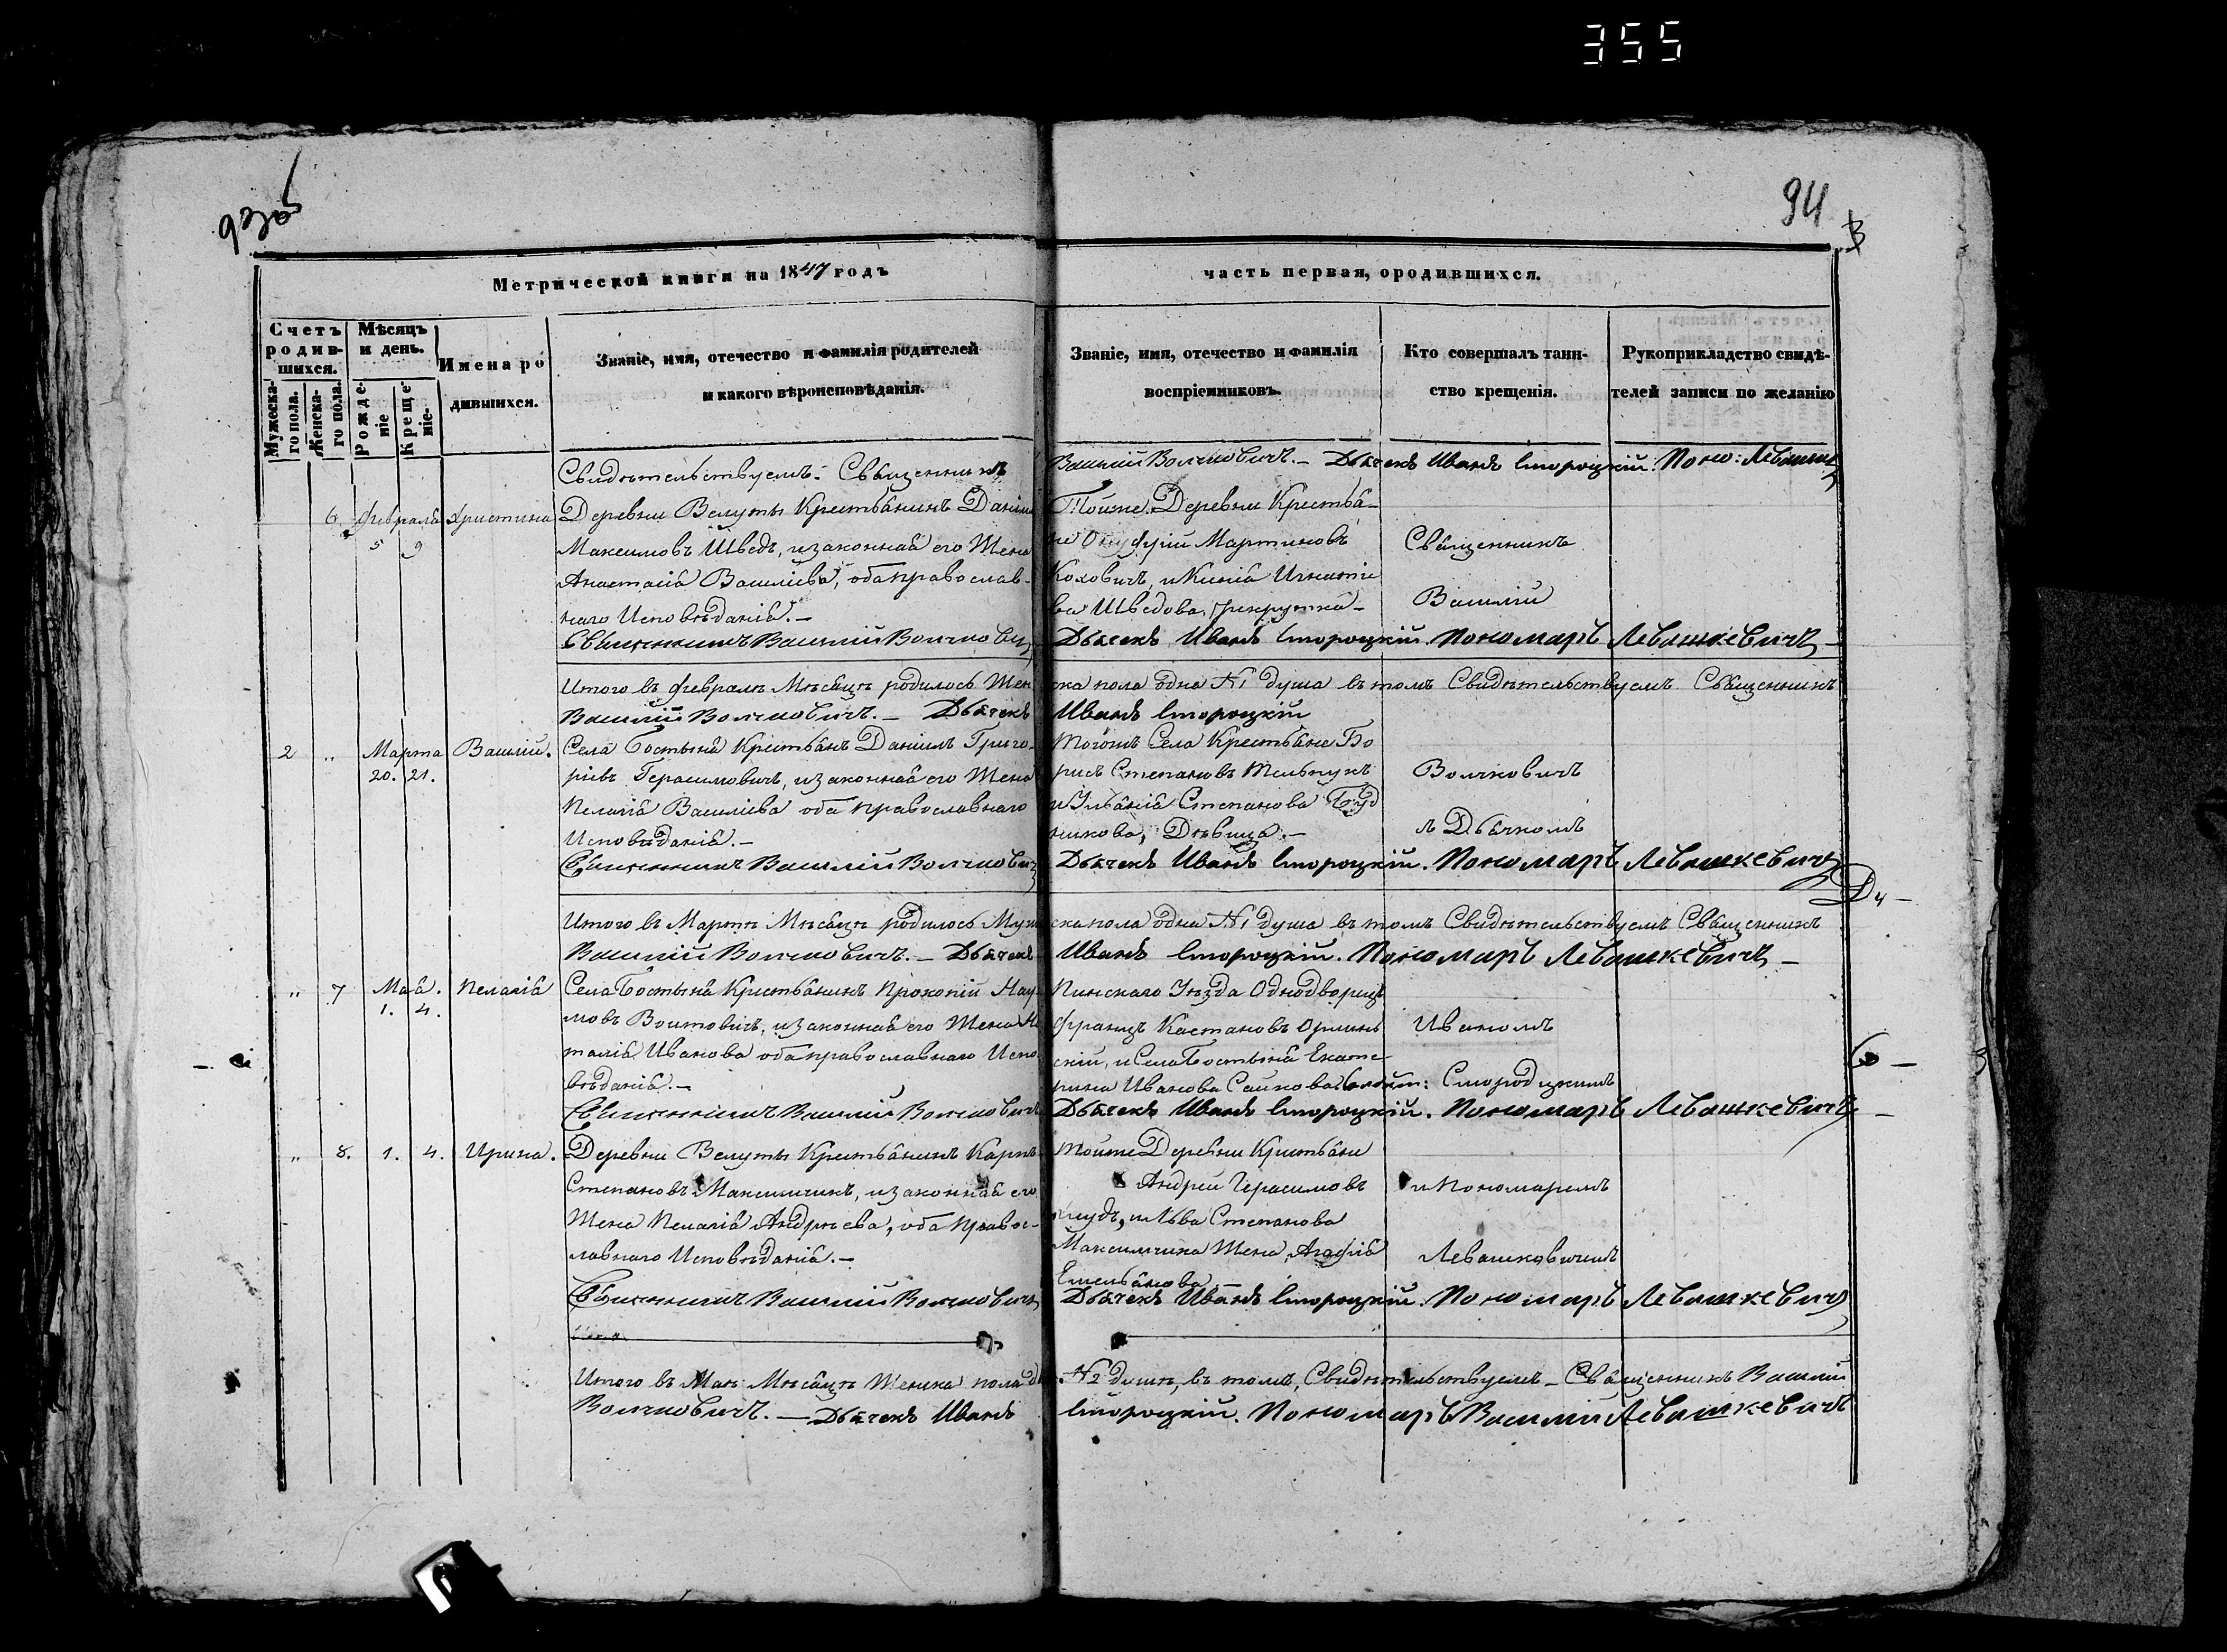 355
93об
94
Метрической книги на 1847 годъ
часть первая, ородившихся.
Счетъ родив-
шихся.
Мужеска-
го пола.
Женска-
го пола.
Мѣсяцъ
и день.
Рожде-
ніе
Креще-
ніе-
Имена ро
дившихся.
Званіе, имя, отечество и фамилія родителей
и какого вѣроисповѣданія.
Званіе, имя, отечество и фамилія
воспріемниковъ.
Кто совершалъ таин-
ство крещенія.
Рукоприкладство свидѣ-
телей записи по желанію
Свидѣтельствуемъ: Священникъ
Василій Волчковичъ. – Дьячекъ Иванъ Сторожцкій. Поно:
6. Февраля Христина
5 9
Деревни Велуты Крестьянинъ Даніил
Максимовъ Шведъ, и законная его Жена
Анастасія Василіева, оба православ-
наго Исповѣданія. –
Тойже Деревни Крестья-
не Онуфрій Мартиновъ
Коховичъ, и Ксенія Игнатіе
ва Шведова,
Священникъ
Василій
Священникъ Василій Волчкович
Дьячекъ Иванъ Сторожцкій. Пономарь Левашкевичъ –
Итого въ Февралѣ Мѣсяцѣ родилось Жен
ска пола одна №1 душа въ томъ Свидѣтельствуемъ Священникъ
Василій Волчковичъ. – Дьячекъ
Иванъ Сторожцкій
2 „ Марта Василій.
20. 21.
Села Бостыня Крестьянъ Даніилъ Григо-
ріевъ Герасимовичъ, и законная его Жена
Пелагія Василіева оба православнаго
Исповѣданія. –
Тогожъ Села Крестьяне Бо
рисъ Степановъ Мельнукъ
и Ульянія Степанова Буд
никова, Дѣвица. –
Волчковичъ
съ Дьячкомъ
Священникъ Василій Волчкович
Дьячекъ Иванъ Сторожцкій. Пономарь Левашкевичъ
Итого въ Мартѣ Мѣсяцѣ родилось Муж
ска пола одна №1 душа въ томъ Свидѣтельствуемъ Священникъ
Василій Волчковичъ. – Дьячекъ
Иванъ Сторожцкій. Пономарь Левашкевичъ –
„ 7 Мая. Пелагія
1. 4.
Села Бостыня Крестьянинъ Прокопій Нау-
мовъ Воитовичъ, и законная его Жена На
талія Иванова оба православнаго Испо
вѣданія. –
Пинскаго Уѣзда Однодворецъ
Францъ Каетановъ
скій, и Села Бостыня Екате-
рина Иванова
Иваномъ
Сторожцкимъ
Священникъ Василій Волчковичъ
Дьячекъ Иванъ Сторожцкій. Пономарь Левашкевичъ –
„ 8. 1. 4. Ирина.
Деревни Велуты Крестьянинъ Карпъ
Степановъ Максимчикъ, и законная его
Жена Пелагія Андрѣева, оба Правос-
лавнаго Исповѣданія. –
Тойже Деревни Крестьяне
Андрей Герасимовъ
и Льва Степанова
Максимчика Жена Агафія
Емельянова
и Пономаремъ
Левашковичемъ
Священникъ Василій Волчковичъ
Дьячекъ Иванъ Сторожцкій. Пономарь Левашкевичъ
Итого въ Маѣ Мѣсяцѣ Женска пола
№2 души, въ томъ, Свидѣтельствуемъ – Священникъ Василій
Волчковичъ. – Дьячекъ Иванъ
Сторожцкій. Пономарь Василій Левашкевичъ